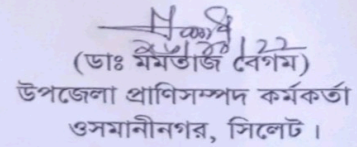 (ডাঃ মমতাজ বেগম)
উপজেলা প্রাণিসম্পদ কর্মকর্তা
ওসমানীনগর, সিলেট।